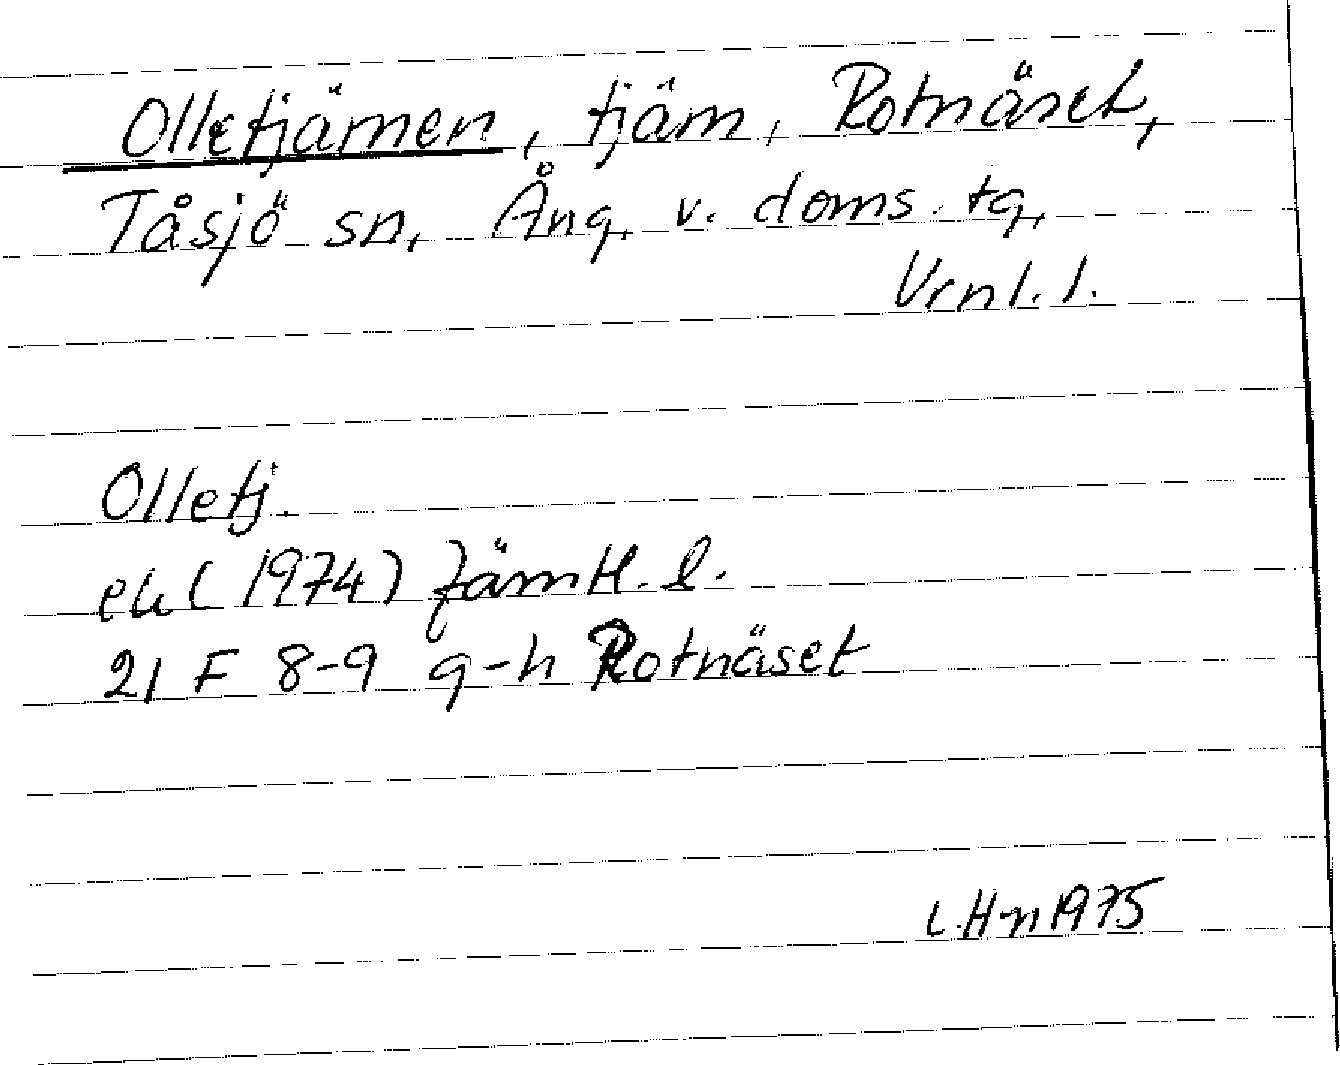 Olletjärnen, tjärn, Rotnäset,
Tåsjö sn, Ång. v. doms. tg,
Vrnl. l.
Olletj.
ek (1974) Jämtl. l.
21 F 8-9 g-h Rotnäset
L.H-n 1975